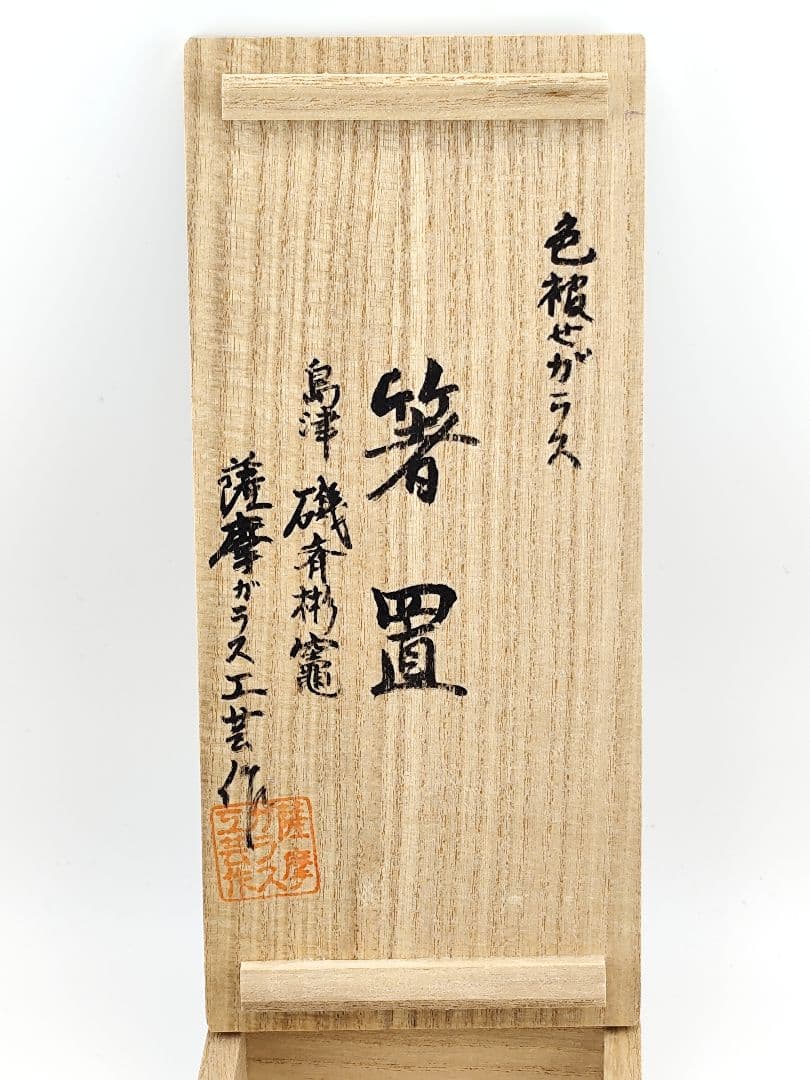 色被せガラス
箸置
島津 磯斉彬竈
薩摩ガラス工芸作
薩摩
ガラス
工芸作